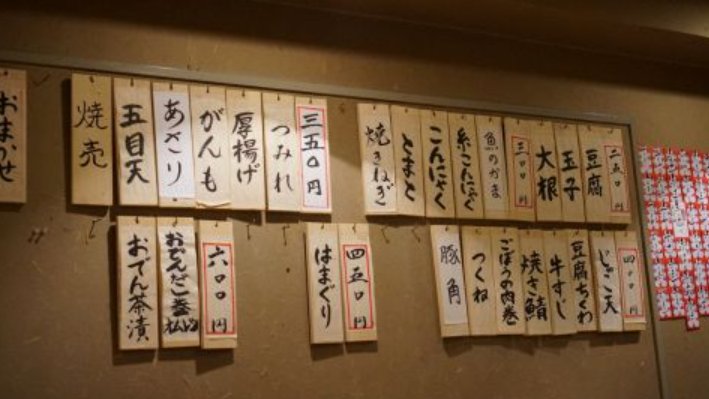 二五〇円
豆腐
玉子
大根
三〇〇円
魚のかま
糸こんにゃく
こんにゃく
とまと
焼きねぎ
三五〇円
つみれ
厚揚げ
がんも
あさり
五目天
焼売
おまかせ
四〇〇円
じゃこ天
豆腐ちくわ
牛すじ
焼き鯖
ごぼうの肉巻
つくね
豚角
四五〇円
はまぐり
六〇〇円
おでんだし巻
おでん茶漬